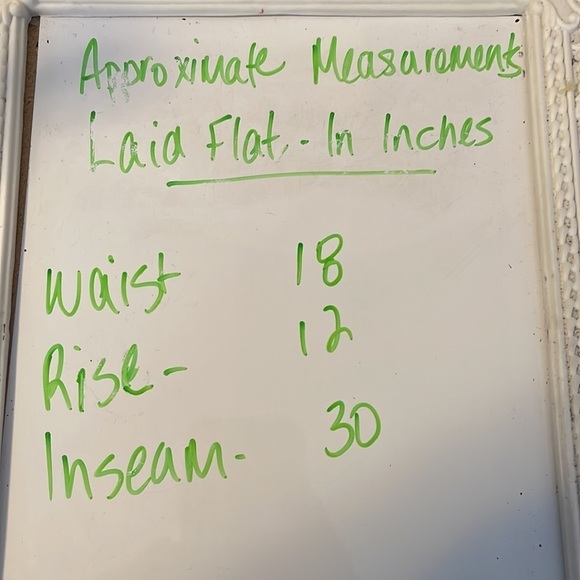 Approximate Measurements
Laid Flat - In Inches
Waist 18
Rise - 12
Inseam - 30